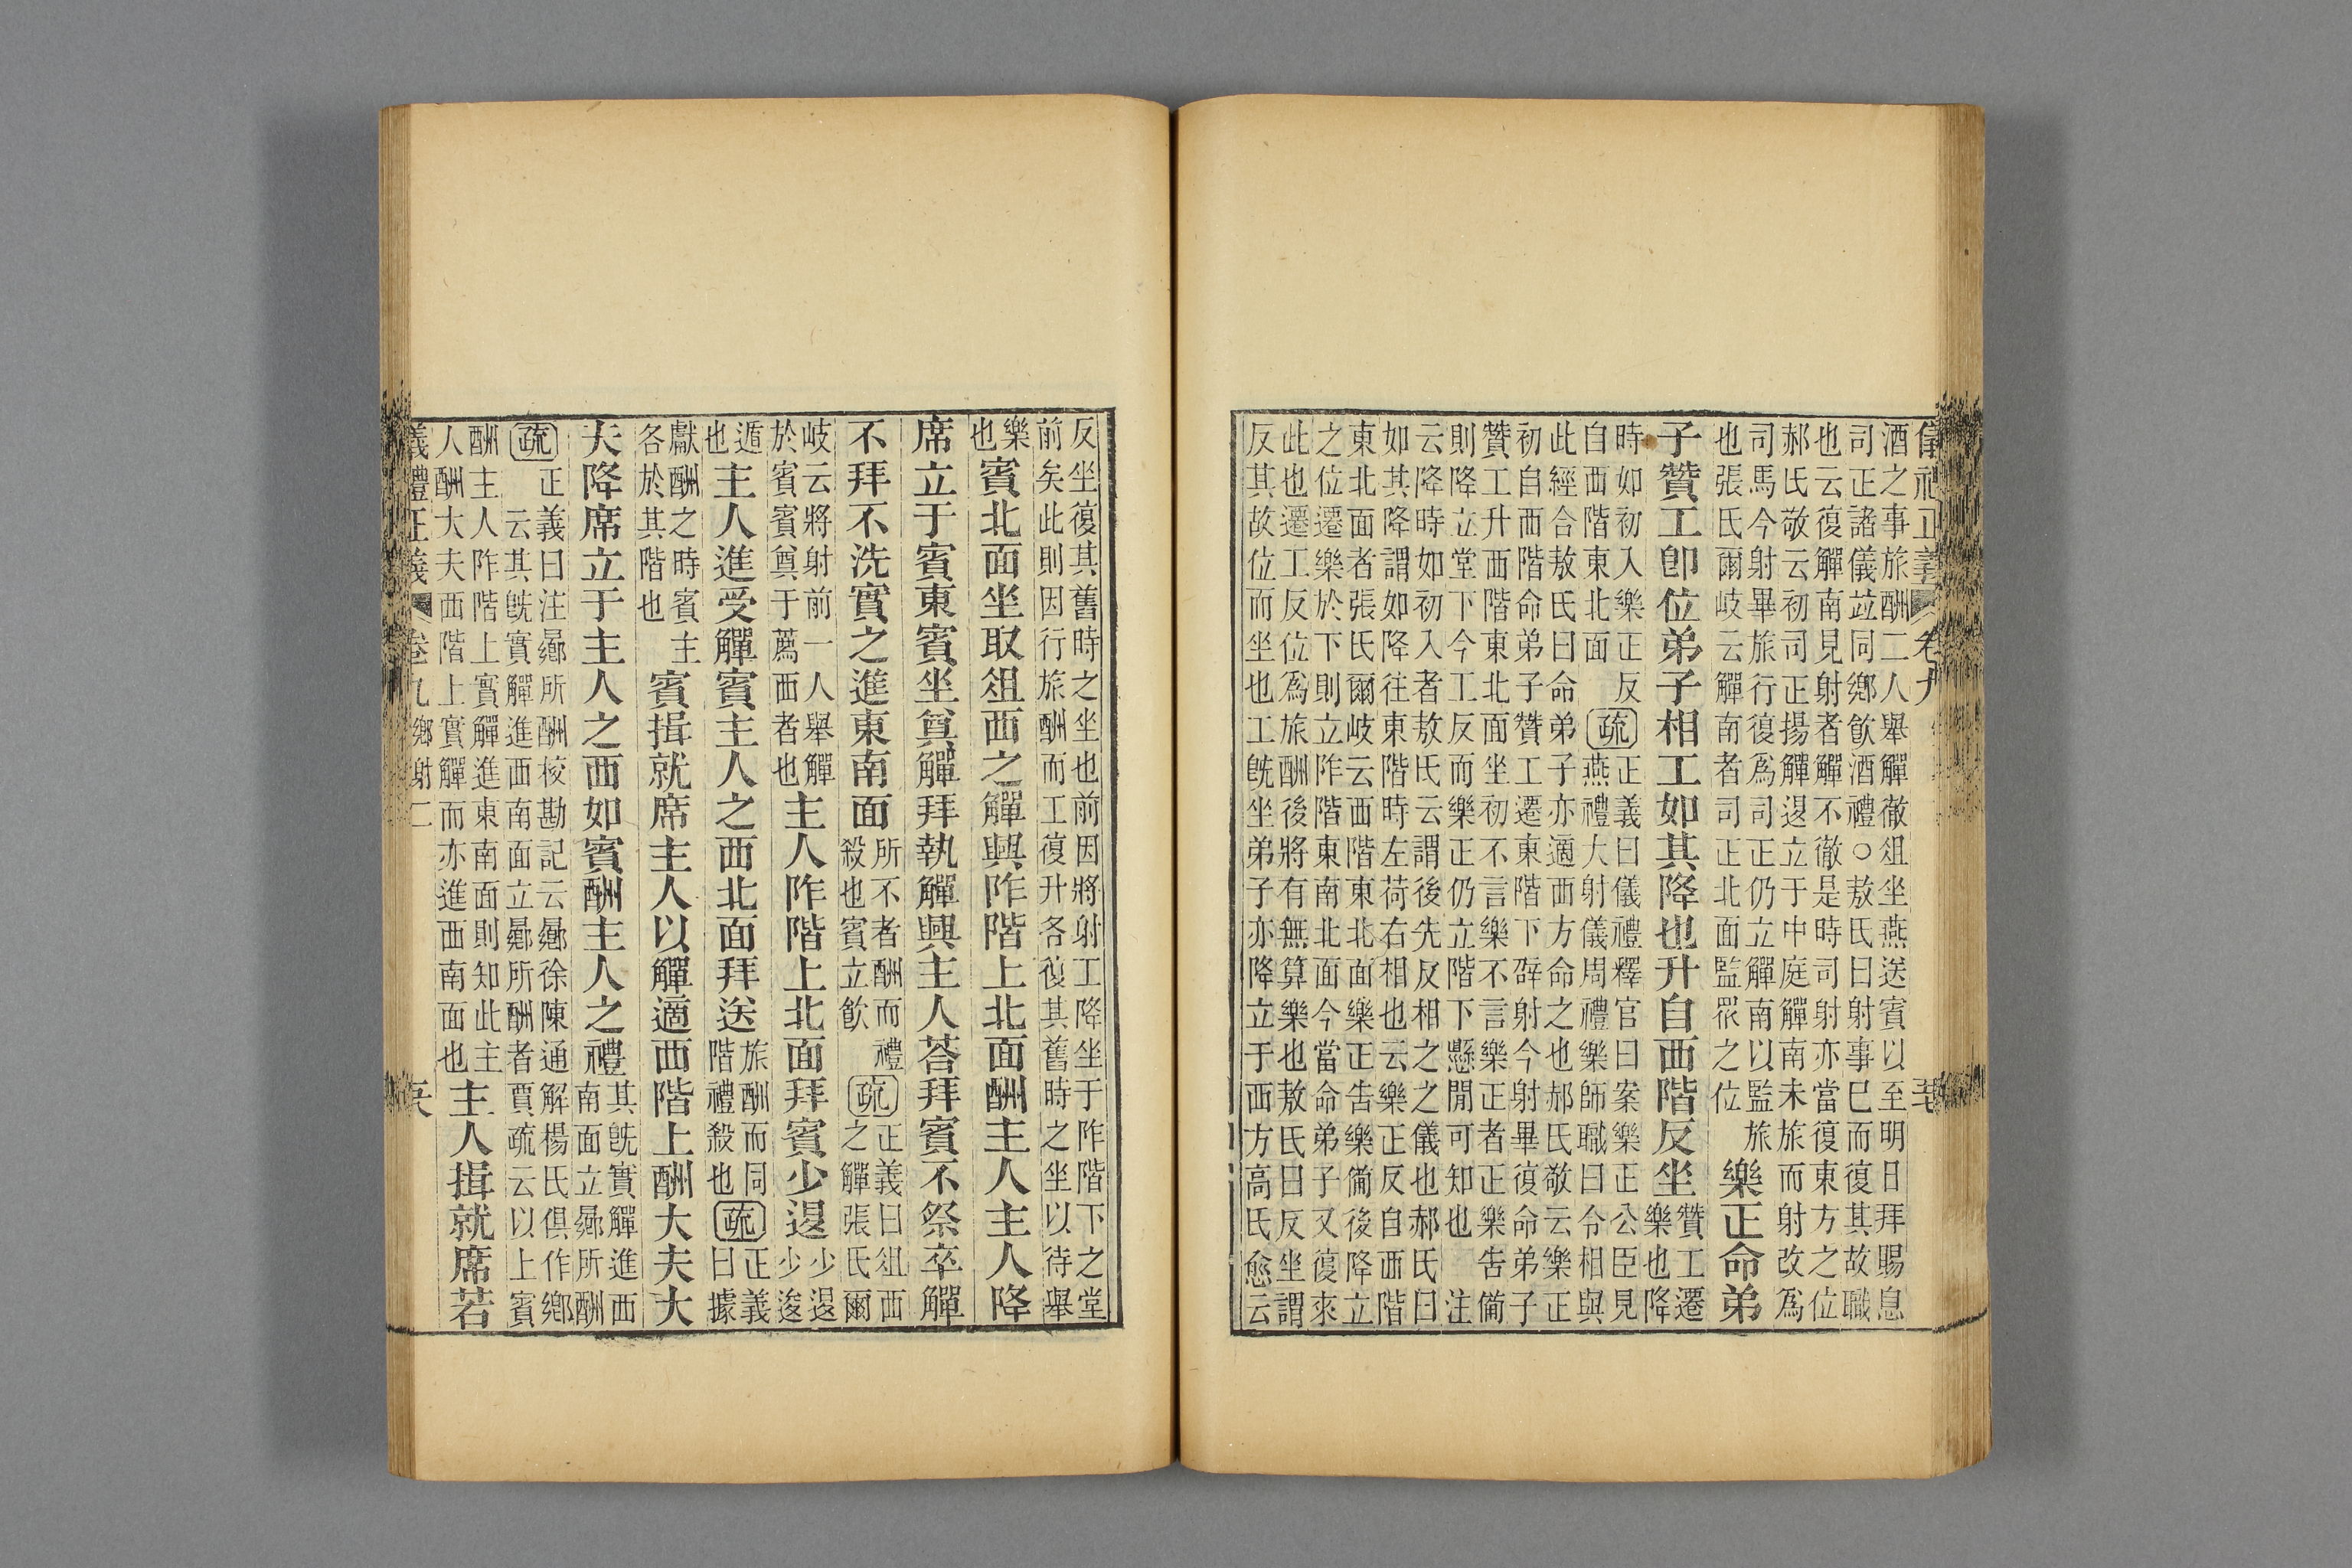 儀禮正義 卷九
酒之事旅酬二人舉觶徹俎坐燕送賓以至明日拜賜息
司正諸儀竝同鄉飲酒禮○敖氏曰射事已而復其故職
也云復觶南見射者觶不徹是時司射亦當復東方之位
郝氏敬云初司正揚觶退立于中庭觶南未旅而射改爲
司馬今射畢旅行復爲司正仍立觶南以監旅
也張氏爾岐云觶南者司正北面監眾之位
樂正命弟
子贊工卽位弟子相工如其降也升自西階反坐
贊工遷
樂也降
時如初入樂正反
自西階東北面
疏
正義曰儀禮釋官曰案樂正公臣見
燕禮大射儀周禮樂師職曰令相與
此經合敖氏曰命弟子亦適西方命之也郝氏敬云樂正
初自西階命弟子贊工遷東階下辟射今射畢復命弟子
贊工升西階東北面坐初不言樂不言樂正者正樂告備
則降立堂下今工反而樂正仍立階下懸閒可知也 注
云降時如初入者敖氏云謂後先反相之之儀也郝氏曰
如其降謂如降往東階時左荷右相也云樂正反自西階
東北面者張氏爾岐云西階東北面樂正告樂備後降立
之位遷樂於下則立阼階東南北面今當命弟子又復來
此也遷工反位爲旅酬後將有無算樂也敖氏曰反坐謂
反其故位而坐也工旣坐弟子亦降立于西方高氏愈云
反坐復其舊時之坐也前因將射工降坐于阼階下之堂
前矣此則因行旅酬而工復升各復其舊時之坐以待舉
樂
也
賓北面坐取俎西之觶興阼階上北面酬主人主人降
席立于賓東賓坐奠觶拜執觶興主人荅拜賓不祭卒觶
不拜不洗實之進東南面
所不者酬而禮
殺也賓立飲
疏
正義曰俎西
之觶張氏爾
岐云將射前一人舉觶
於賓賓奠于薦西者也
主人阼階上北面拜賓少退
少退
少逡
遁
也
主人進受觶賓主人之西北面拜送
旅酬而同
階禮殺也
疏
正義
曰據
獻酬之時賓主
各於其階也
賓揖就席主人以觶適西階上酬大夫大
夫降席立于主人之西如賓酬主人之禮
其旣實觶進西
南面立鄉所酬
疏
正義曰注鄉所酬校勘記云鄉徐陳通解楊氏俱作鄉
云其旣實觶進西南面立鄉所酬者賈疏云以上賓
酬主人阼階上實觶進東南面則知此主
人酬大夫西階上實觶而亦進西南面也
主人揖就席若
儀禮正義 卷九鄉射二